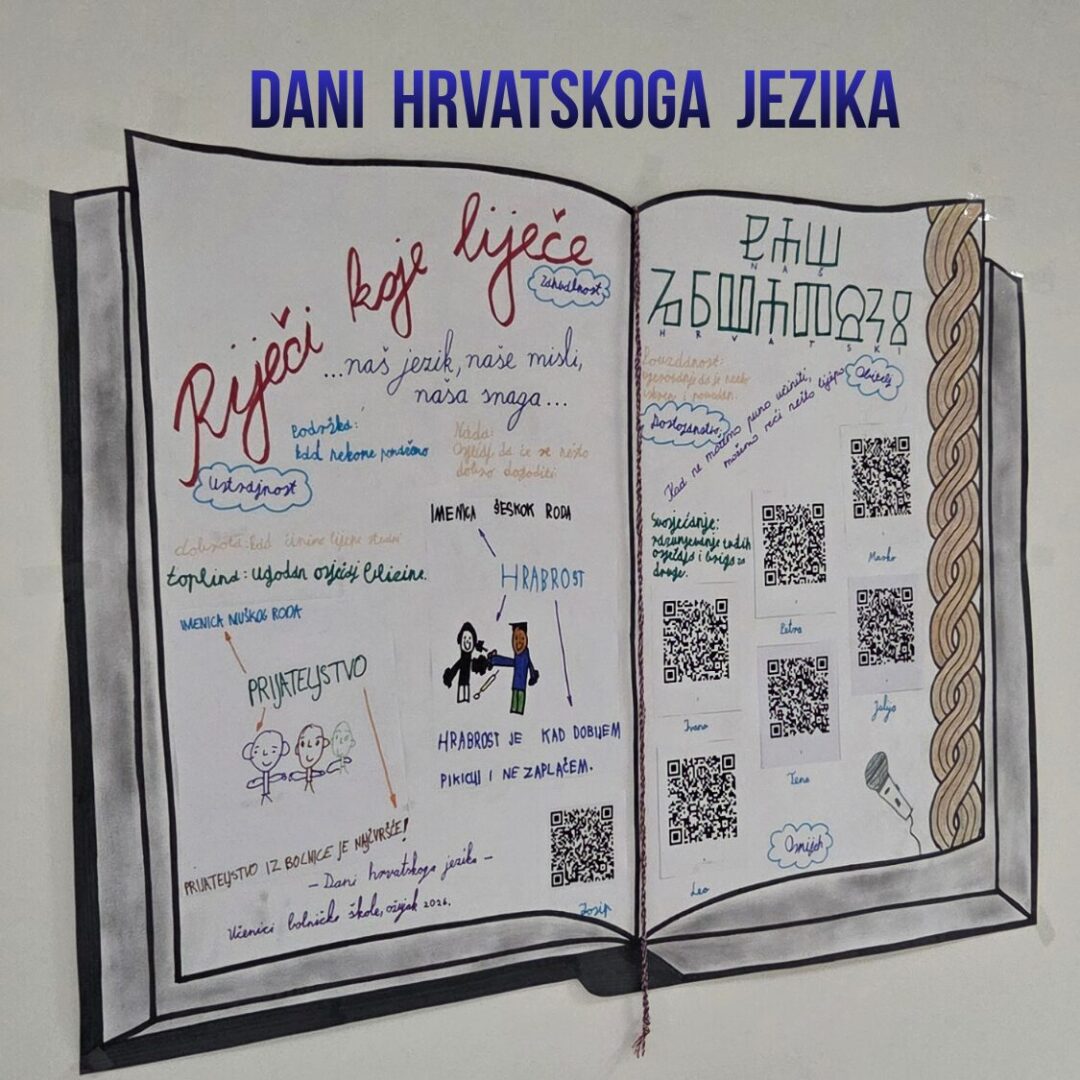 DANI HRVATSKOGA JEZIKA
Riječi koje liječe
Zahvalnost
...naš jezik, naše misli,
naša snaga...
Podrška:
kad rekome pomažemo
Nada:
Osjećaj da će se nešto
dobro dogoditi
Ustrajnost
dobrota-kad činimo lijepe stvari
toplina: ugodan osjećaj blizine.
IMENICA MUŠKOG RODA
PRIJATELJSTVO
PRIJATELJSTVO IZ BOLNICE JE NAJČVRŠĆE!
IMENICA ŠESKOK RODA
HRABROST
HRABROST JE KAD DOBIJEM
PIKICU I NE ZAPLAČEM.
– Dani hrvatskoga jezika –
Učenici bolničke škole, ožujak 2026.
Josip
ⰅⰰⰞ
NAŠ
HRVATSKI
Pouzdanost:
vjerovanje da je netko
iskren i pouzdan.
Obitelj
Dostojanstvo
Kad ne možemo puno učiniti,
možemo reći nešto lijepo
Suosjećanje:
razumjevanje tuđih
osjećaja i briga za
druge.
Marko
Petra
Julija
Ivano
Tena
Leo
Osmijeh